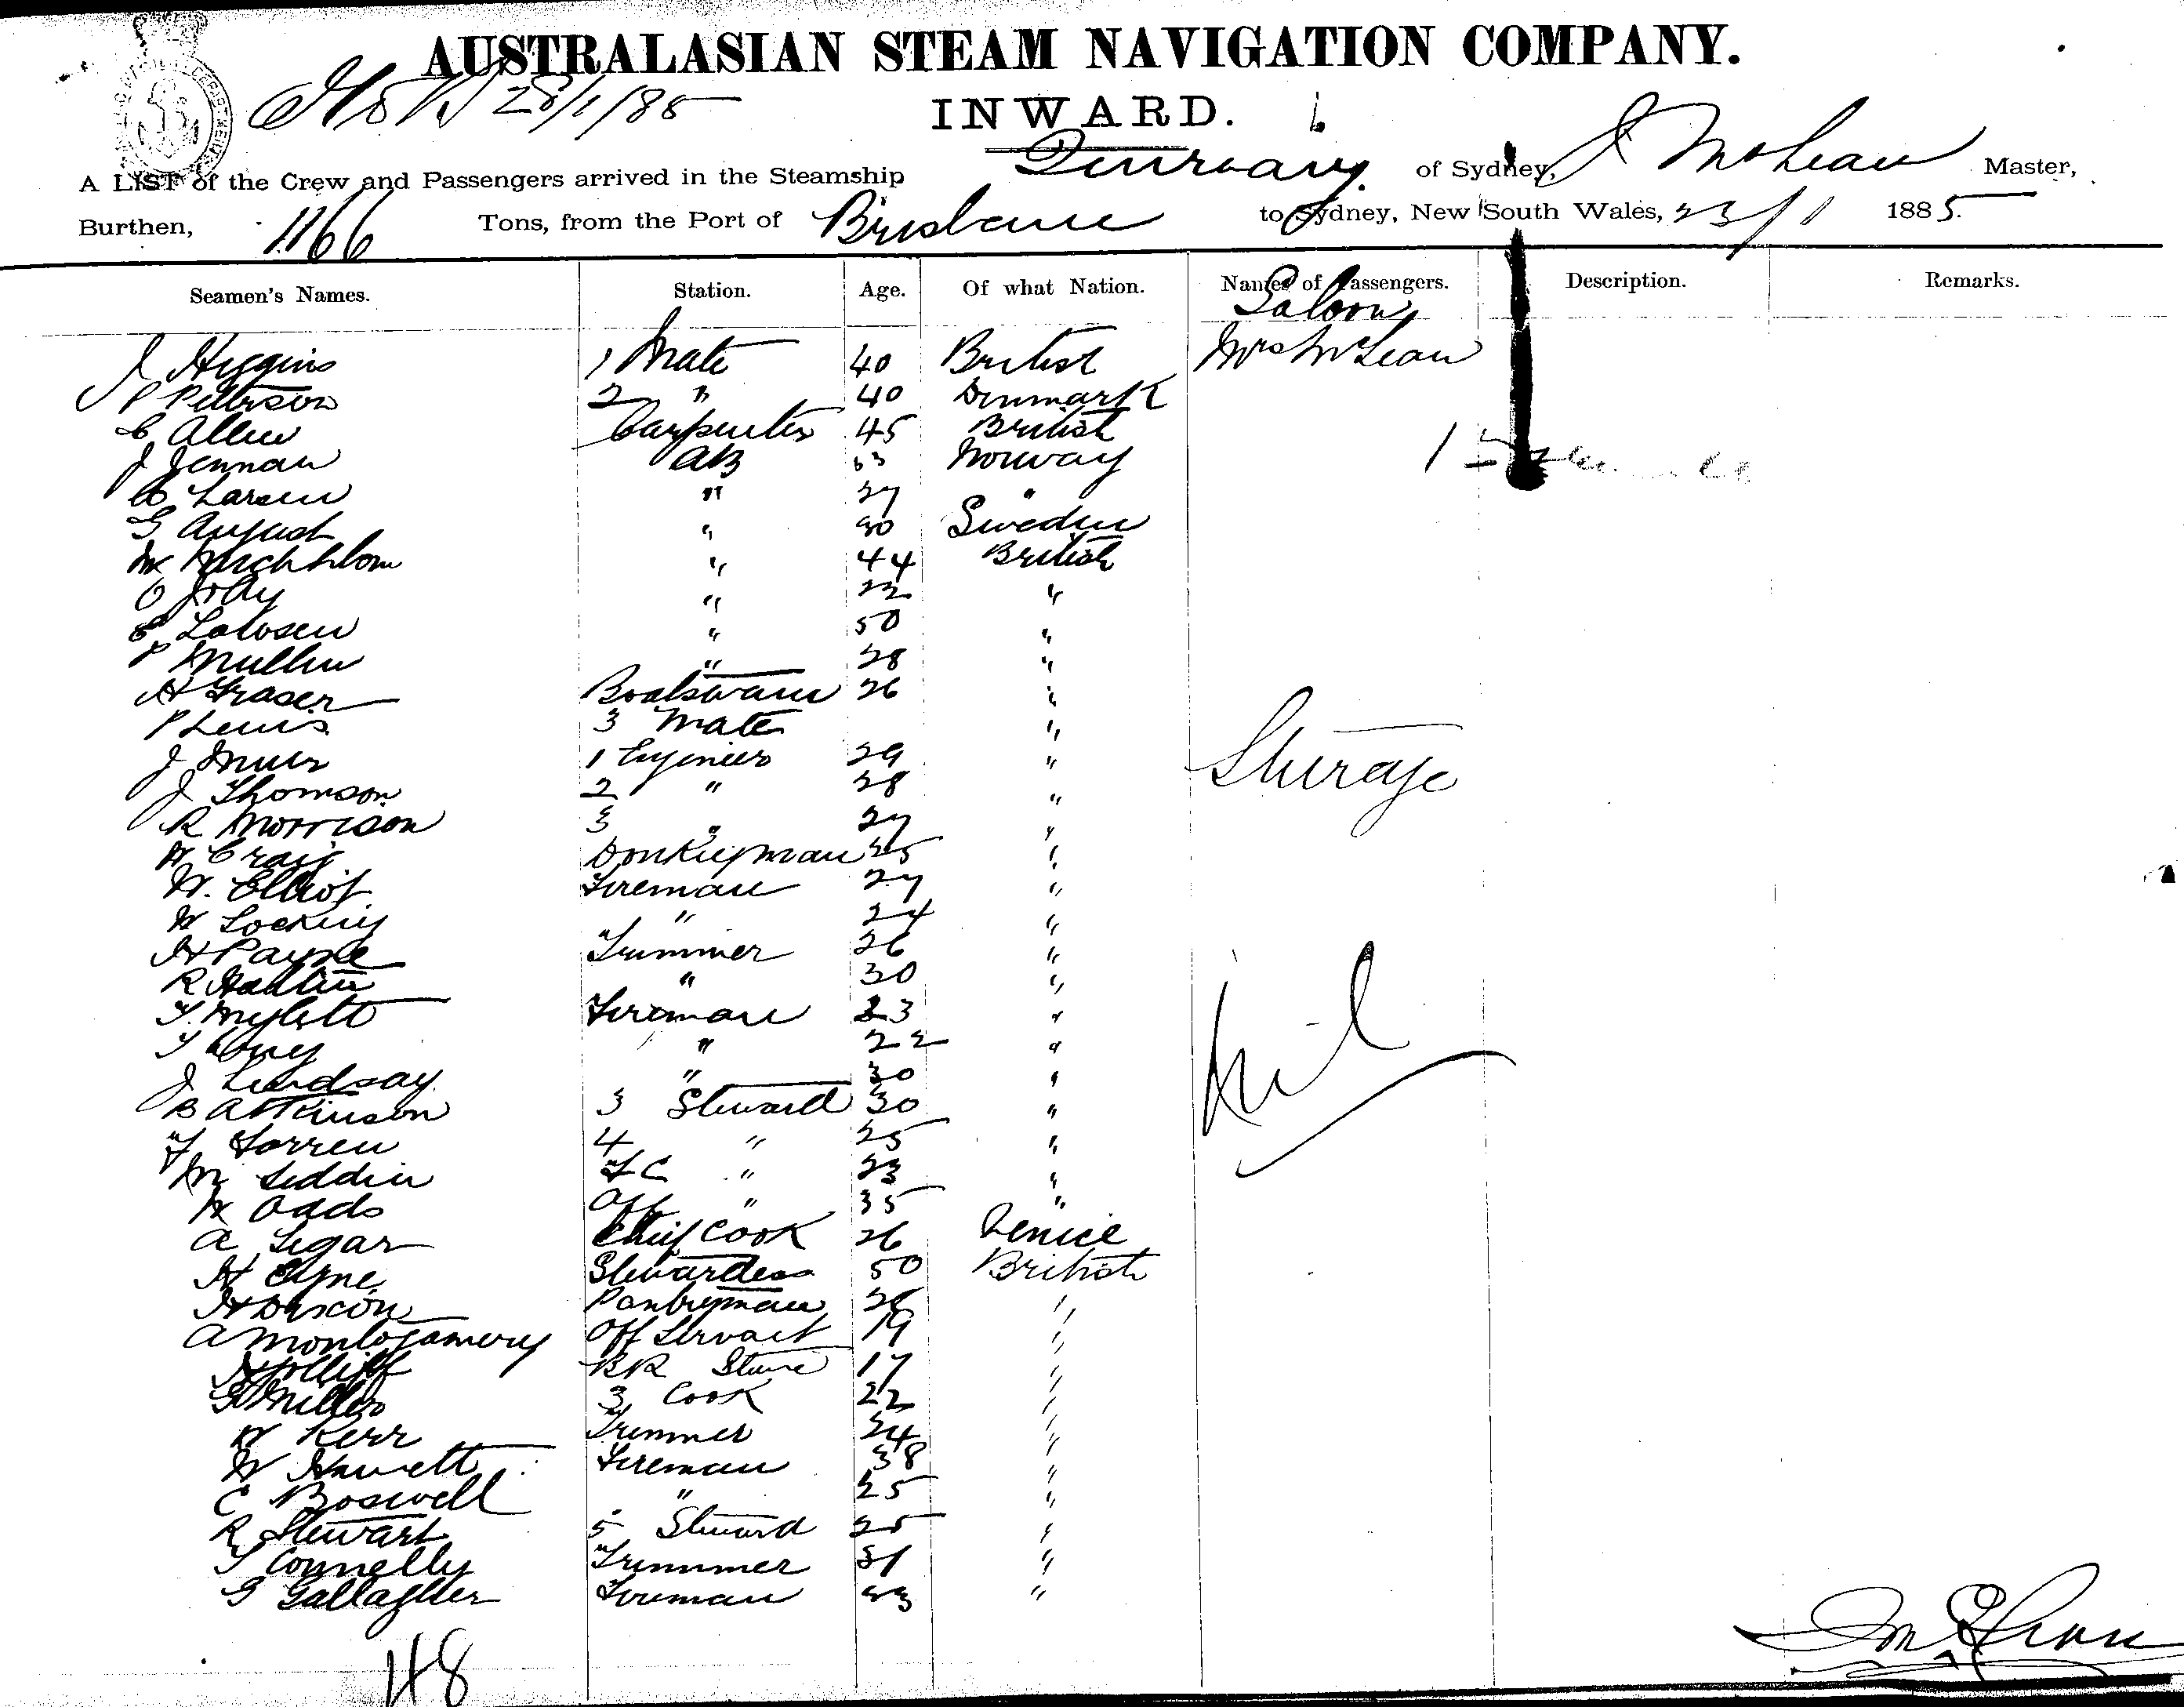 AUSTRALASIAN STEAM NAVIGATION COMPANY.
28/1/85
INWARD.
A LIST of the Crew and Passengers arrived in the Steamship of Sydney, J McLean Master,
Burthen, 1166 Tons, from the Port of Brisbane to Sydney, New South Wales, 23/1 1885.
Seamen's Names. Station. Age. Of what Nation. Names of Passengers. Description. Remarks.
Saloon
J Higgins 1 Mate 40 British Mrs McLean
P Peterson 2 " 40 Denmark
C Allen Carpenter 45 British
J Jennan AB 33 Norway
C Larsen " 27 "
G August " 30 Sweden
W " 44 British
O Jolly " 22 "
Lawsen " 50 "
P Mullen " 28 "
H Fraser Boatswain 26 "
P Lewis 3 Mate "
J Muir 1 Engineer 29 "
J Thomson 2 " 28 "
Steerage
R Morrison 3 " 27 "
W Craig Donkeyman 25 "
W. Elliot Fireman 27 "
W Locking " 24 "
H Payne Trimmer 26 "
R " 30 "
T. Mylett Fireman 23 "
Nil
T " 22 "
J Lindsay " 30 "
B Atkinson 3 Steward 30 "
F Torren 4 " 25 "
M Liddin F C " 23 "
W Odds Aft " 35 "
A Legar Chief Cook 26 Venice
H Clyne Stewardess 50 British
H Dixon Pantryman 26 "
A Montogamery Off Servant 19 "
H Jolliff BR Stew 17 "
G Miller 3 Cook 22 "
W Kerr Trimmer 24 "
W Hewett Fireman 38 "
C Boswell " 25 "
R Stewart 5 Steward 25 "
T Connelly Trimmer 31 "
G Gallagher Fireman 33 "
48